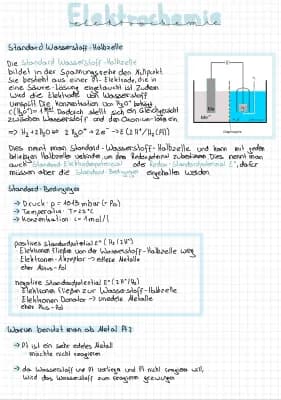 Elektrochemie
elektrochemie
Standard Wasserstoff-Halbzelle
Die Standard Wasserstoff-Halbzelle
bildet in der Spannungsreihe den Nullpunkt.
Sie besteht aus einer Pt-Elektrode, die in
eine Säure-Lösung eingetaucht ist. Zudem
wird die Elektrode von Wasserstoff
umspült. Die Konzentration von H₃O⁺ beträgt
c(H₃O⁺)= 1 mol. Dadurch stellt sich ein Gleichgewicht
zwischen Wasserstoff und den Oxonium-Ionen ein
⇒ H₂ + 2 H₂O ⇌ 2 H₃O⁺ + 2e⁻ → E(2H⁺/H₂(Pt))
Dies nennt man Standard-Wasserstoff-Halbzelle und kann mit jeder
beliebigen Halbzelle verbinden um dem Redoxpotenzial zubestimmen. Dies nennt man
auch Standard-Elektrodenpotenzial oder Redox-Standardpotenzial E°, dafür
müssen aber die Standard-Bedingungen eingehalten werden.
Standard-Bedingungen
→ Druck: p = 1013 mbar (= Pa)
→ Temperatur: T = 25°C
→ Konzentration: c = 1mol/l
positives Standardpotenzial E° (H₂/2H⁺)
Elektronen fließen von der Wasserstoff-Halbzelle weg
Elektronen-Akzeptor → edlere Metalle
eher Minus-Pol
negative Standardpotenzial E° (2H⁺/H₂)
Elektronen fließen zur Wasserstoff-Halbzelle
Elektronen Donator → unedele Metalle
eher Plus-Pol
Warum benutzt man als Metal Pt?
→ Pt ist ein sehr edeles Metall
möchte nicht reagieren
→ da Wasserstoff und Pt vorliegen und Pt nicht reagieren will,
wird das Wasserstoff zum reagieren gezwungen